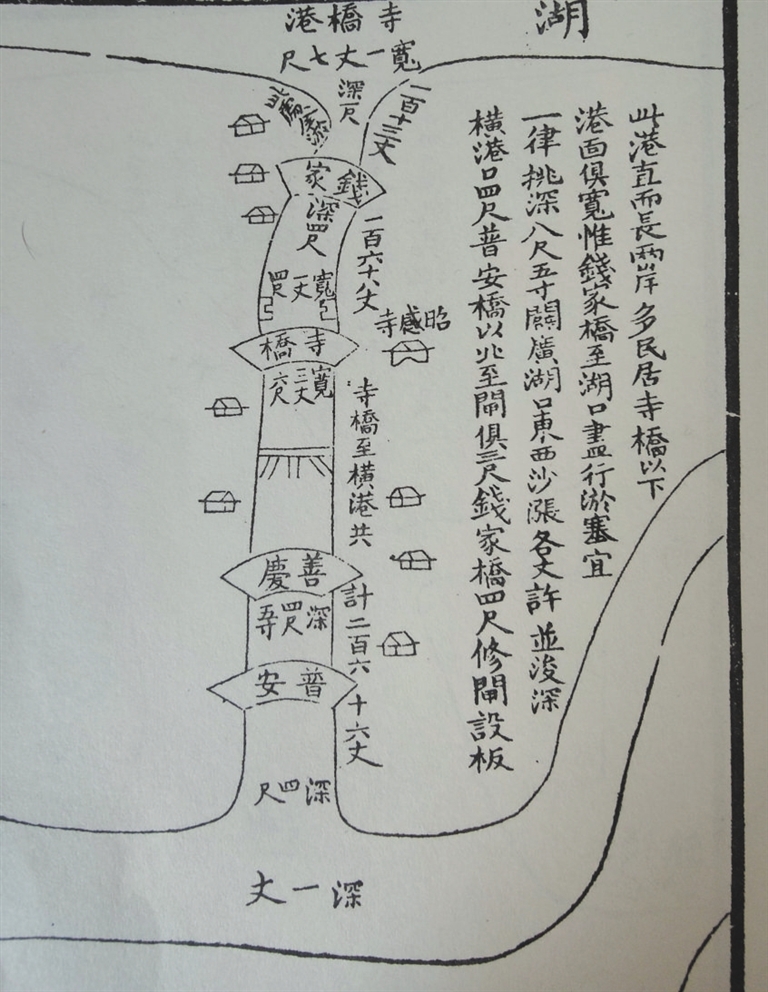 湖
寺橋港
寬一丈七尺
深一尺
此處淤
一百十三丈
此港直而長兩岸多民居寺橋以下
港面俱寬惟錢家橋至湖口盡行淤塞宜
一律挑深八尺五寸闢廣湖口東西沙漲各丈許並浚深
橫港口四尺普安橋以北至閘俱三尺錢家橋四尺修閘設板
錢家
深四尺
一百六十八丈
寬一丈四尺
昭感寺
寺橋
寬三丈六尺
寺橋至橫港共計二百六十六丈
善慶
深四尺五寸
普安
深四尺
深一丈